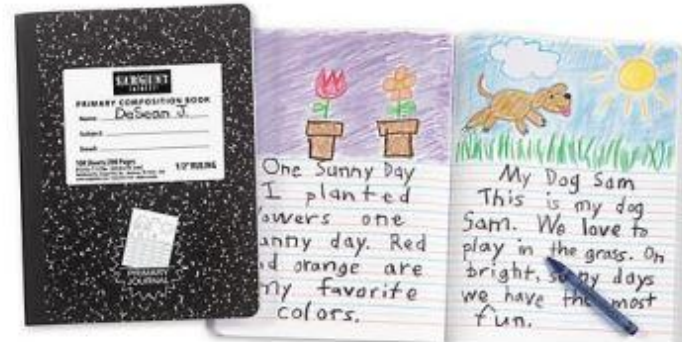 SARGENT
PRIMARY COMPOSITION BOOK
Name: DeSean J.
Subject:
Email:
100 Sheets/200 Pages
1/2" RULING
PRIMARY
JOURNAL
One Sunny Day
I planted
owers one
unny day. Red
d orange are
my favorite
colors.
My Dog Sam
This is my dog
Sam. We love to
play in the grass. On
bright, days
we have the most
fun.